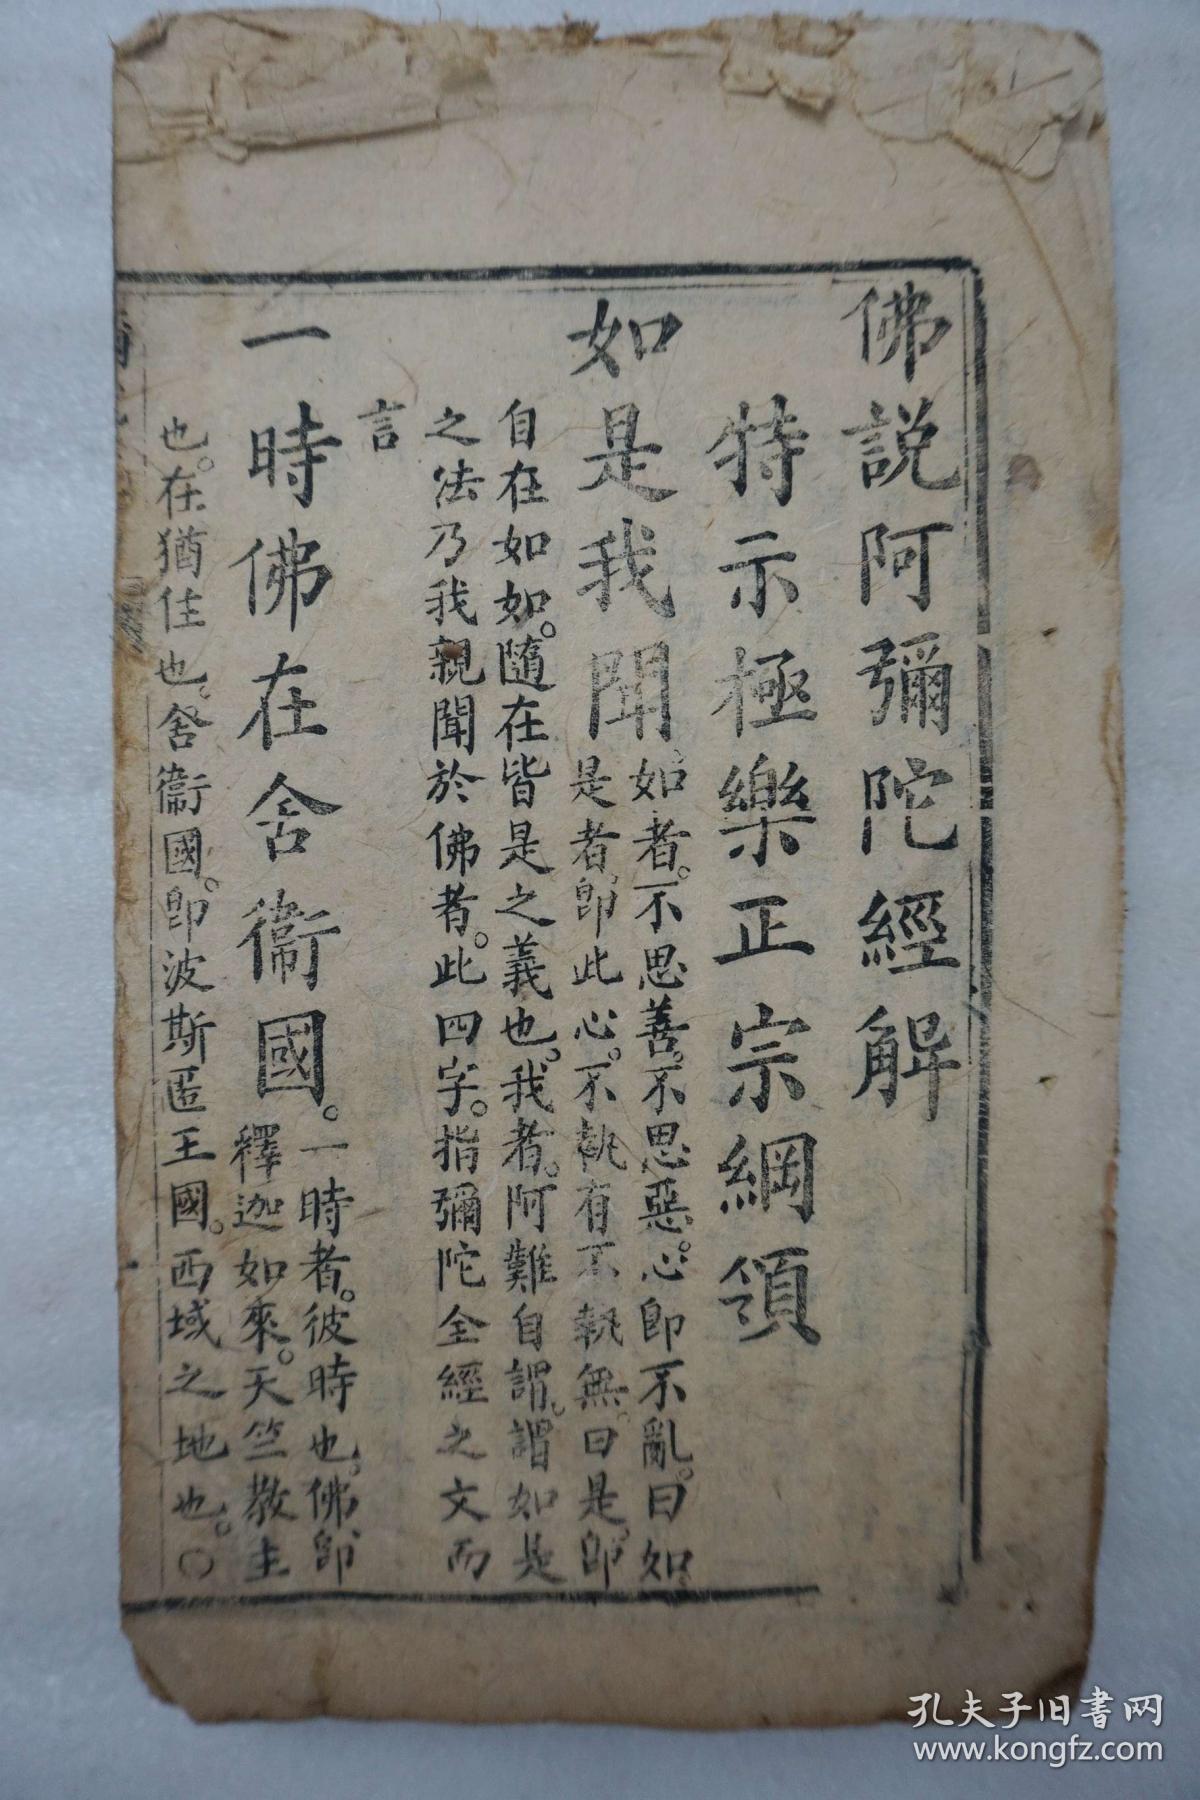 佛說阿彌陀經解
特示極樂正宗綱領
如是我聞
如者。不思善。不思惡。心即不亂。曰如
是者。即此心。不執有不執無。曰是。即
自在如如。隨在皆是之義也。我者。阿難自謂。謂如是
之法乃我親聞於佛者。此四字。指彌陀全經之文而
言
一時佛在舍衞國。
一時者。彼時也。佛即
釋迦如來。天竺教主
也。在猶住也。舍衞國。即波斯匿王國。西域之地也。○
孔夫子旧书网
www.kongfz.com